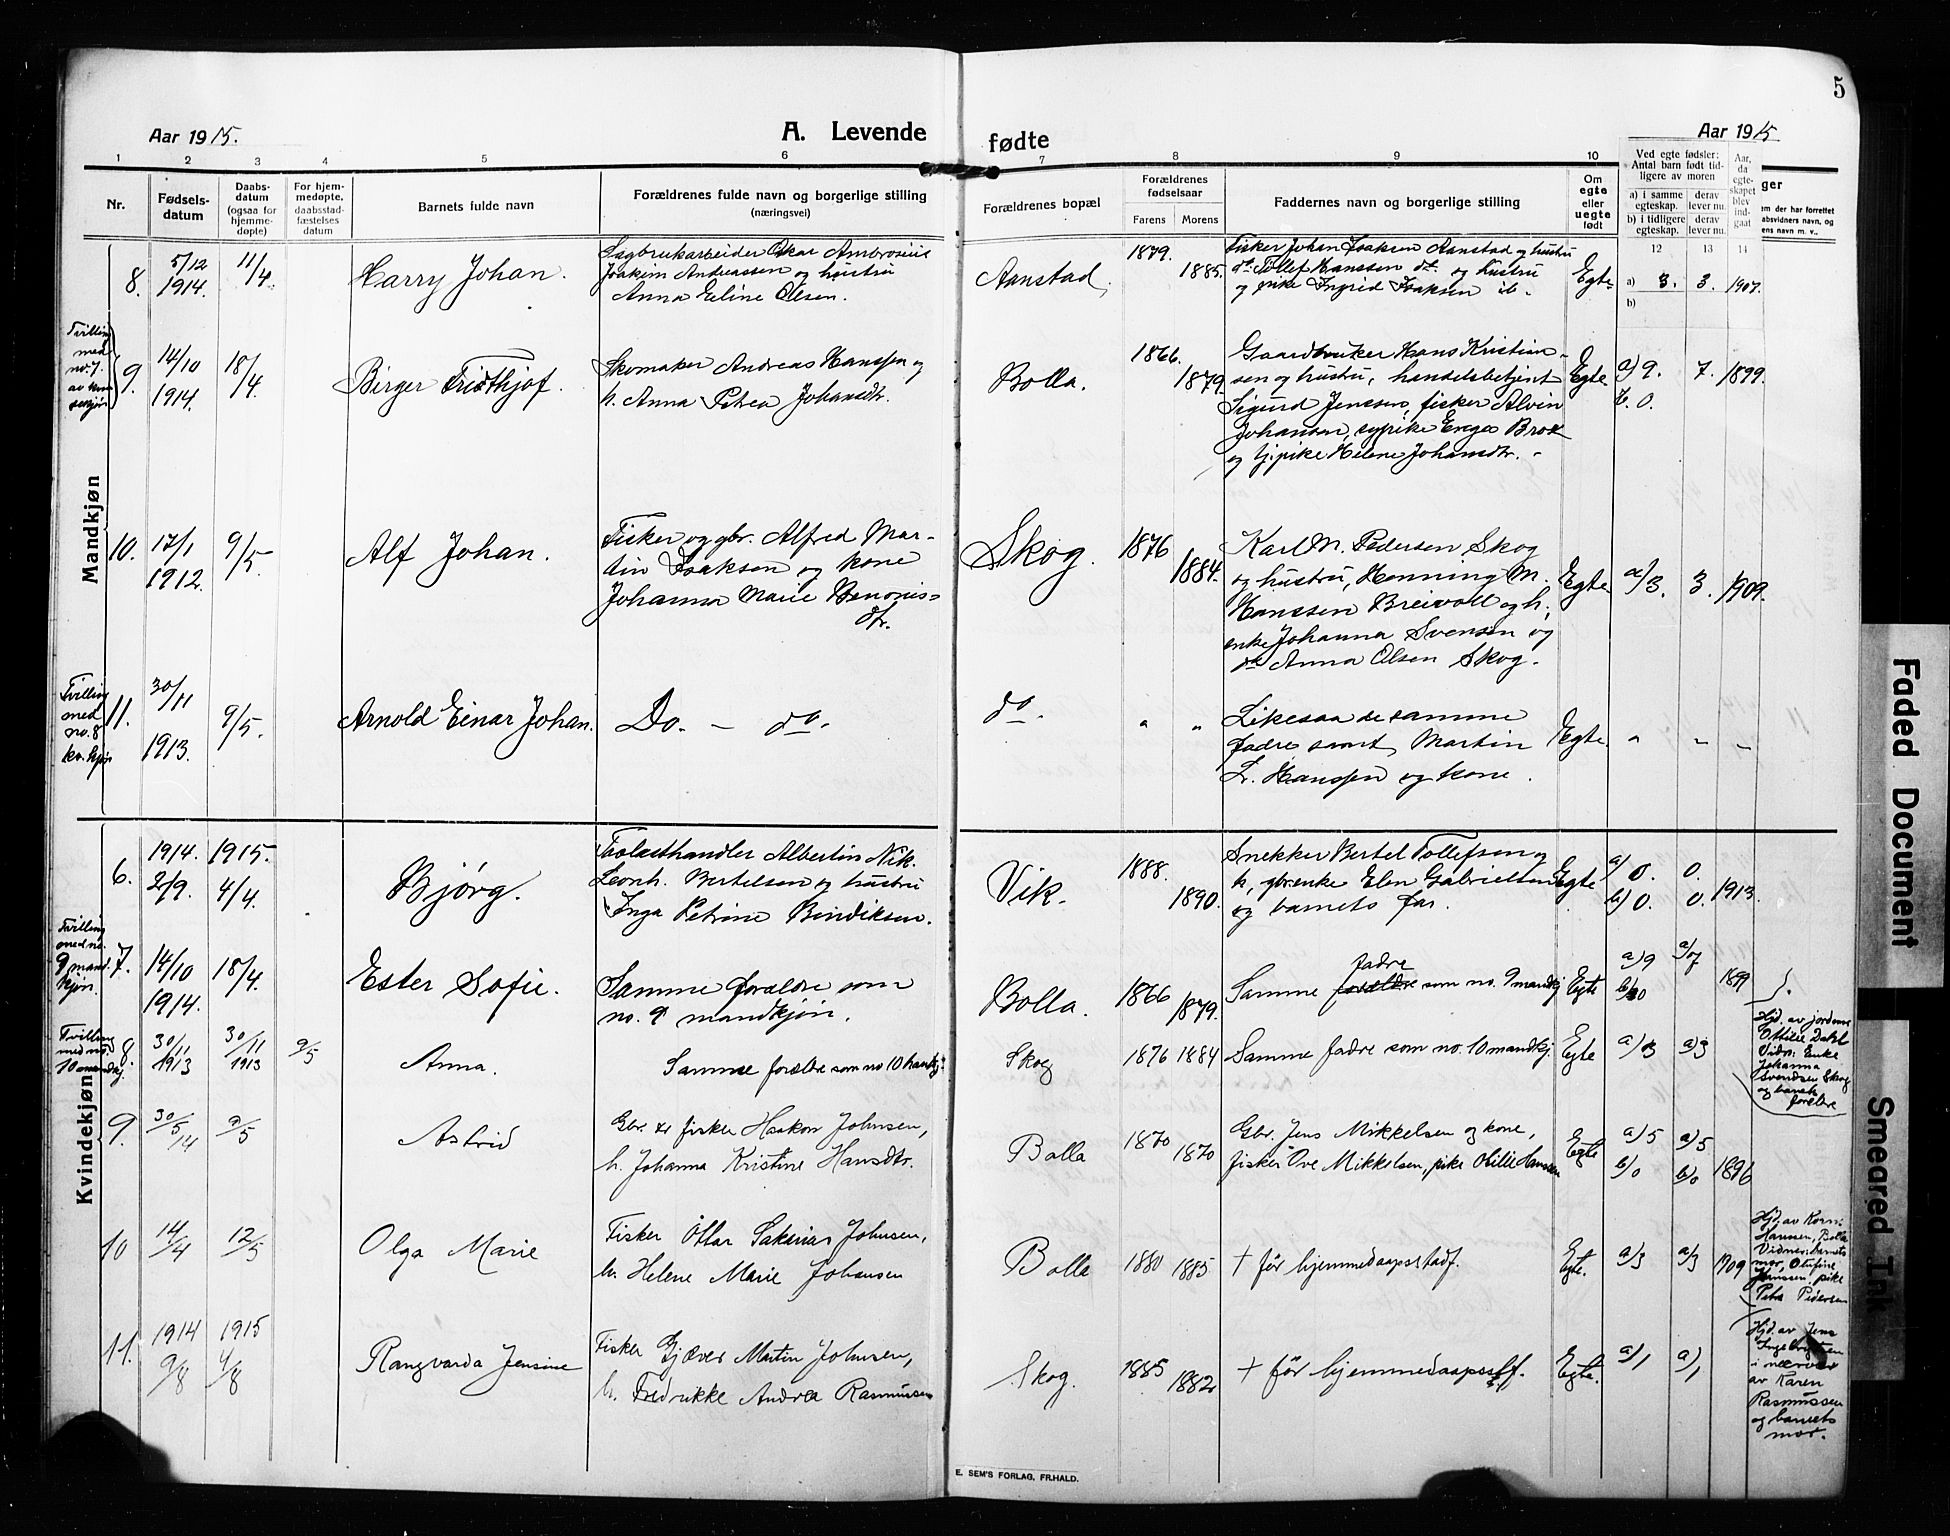 5
Aar 1915.
A. Levende fødte
Aar 1915
1 2 3 4 5 6 7 8 9 10 12 13 14
Nr.
Fødsels-
datum
Daabs-
datum
(ogsaa for
hjemme-
døpte)
For hjem-
medøpte,
daabsstad-
fæstelses
datum
Barnets fulde navn
Forældrenes fulde navn og borgerlige stilling
(næringsvei)
Forældrenes bopæl
Forældrenes
fødselsaar
Farens Morens
Faddernes navn og borgerlige stilling
Om
egte
eller
uegte
født
Ved egte fødsler:
Antal barn født tid-
ligere av moren
a) i samme
egteskap.
b) i tidligere
egteskap.
derav
lever nu.
derav
lever nu.
Aar,
da
egte-
skapet
blev
ind-
gaat
ger
em der har forrettet
aabsvidners navn, og
ens navn m. v.,
Mandkjøn
8.
5/12
1914.
11/4.
Harry Johan.
Sagbruksarbeider Oskar Ambrosius
Joakim Andreassen og hustru
Anna Eline Olsen.
Aanstad,
1879.
1885.
Fisker Johan Isaksen Aanstad og hustru
do Tollef Hanssen do. og hustru
og pike Ingrid Isaksen ib.
Egte
a) 3. 3. 1907.
b)
Tvilling
med
no. 7.
av kvin
dekjøn
9.
14/10
1914.
18/4.
Birger Fridthjof.
Skomaker Andreas Hanssen og
h. Anna Petrea Johansdtr.
Bolla.
1866.
1879.
Gaardbruker Hans Kristian-
sen og hustru, handelsbetjent
Sigurd Jenssen, fisker Alvin
Johansen, sypike Enga Brox
og tj.pike Helene Johansdtr.
Egte
a) 9. 7. 1899.
b. 0.
10.
17/1
1912.
9/5.
Alf Johan.
Fisker og gbr. Alfred Mar-
tin Isaksen og kone
Johanna Marie Benonis-
dtr.
Skog.
1876
1884.
Karl M. Pedersen Skog
og hustru, Henning M.
Hanssen Breivoll og h.,
enke Johanna Svensen og
do Anna Olsen Skog.
Egte
a/3. 3. 1909.
Tvilling
med
no. 8
kv. kjøn
11.
30/11
1913.
9/5.
Arnold Einar Johan.
Do. — do.
do.
" "
Likesaa de samme
fadre samt Martin
L. Hanssen og kone.
Egte.
" " "
Kvindekjøn
6.
1914.
2/9.
1915.
4/4.
Bjørg.
Albertin Nik.
Leonh. Bertelsen og hustru
Inga Petrine Bendiksen.
Vik.
1888.
1890.
Snekker Bertel Tollefsen og
h., gbr.enke Elen Gabrielsen
og barnets far.
Egte
a) 0. 0.
b) 0. 0. 1913.
Tvilling
med no.
9 mand-
kjøn.
7.
14/10
1914.
18/4.
Ester Sofie.
Samme forældre som
no. 9 mandkjøn.
Bolla.
1866
1879.
Samme forældre fadre som no. 9 mandkj
Egte
a) 9 a) 7
b) 0 1899
Tvilling
med no.
10 mandkj.
8.
30/11
1913
30/11
1913
9/5
Anna.
Samme forældre som no 10 mandkj.
Skog
1876 1884
Samme fadre som no. 10 mandkj.
Egte
a) 3 a) 3
Hjd. av jordmor
Ottilie Dahl
Vidn: Enke
Johanna
Svendsen Skog
og barnets
forældre
9.
30/5
14
9/5
Astrid
Gbr. & fisker Haakon Johnsen,
h. Johanna Kristine Hansdtr.
Bolla
1870
1870
Gbr. Jens Mikkelsen og kone,
fisker Ove Mikkelsen, pike Otilie Hanssen
Egte
a) 5 a) 5
b) 0 b) 0 1896
10
14/4
12/5
Olga Marie
Fisker Ottar Sakarias Johnsen,
h. Helene Marie Johansen
Bolla
1880 1885
† før hjemmedaapsstadf.
Egte.
a) 3 a) 3 1909
Hjd. av Korn.
Hanssen, Bolla
Vidner: barnets
mor, Otufine
Hanssen, pike
Petra Pedersen
11.
1914
9/8
1915
4/8
Rangvarda Jensine
Fisker Gjæver Martin Johnsen,
h. Fredrikke Andrea Rasmussen
Skog.
1885
1882
† før hjemmedaapsstf.
Egte.
a) 1 a) 1
Hjd. av Jens
Ingebrigtsen
i nærvær
av Karen
Rasmussen
og barnets
mor.
E. SEM'S FORLAG, FR.HALD.
Faded Document
Smeared Ink